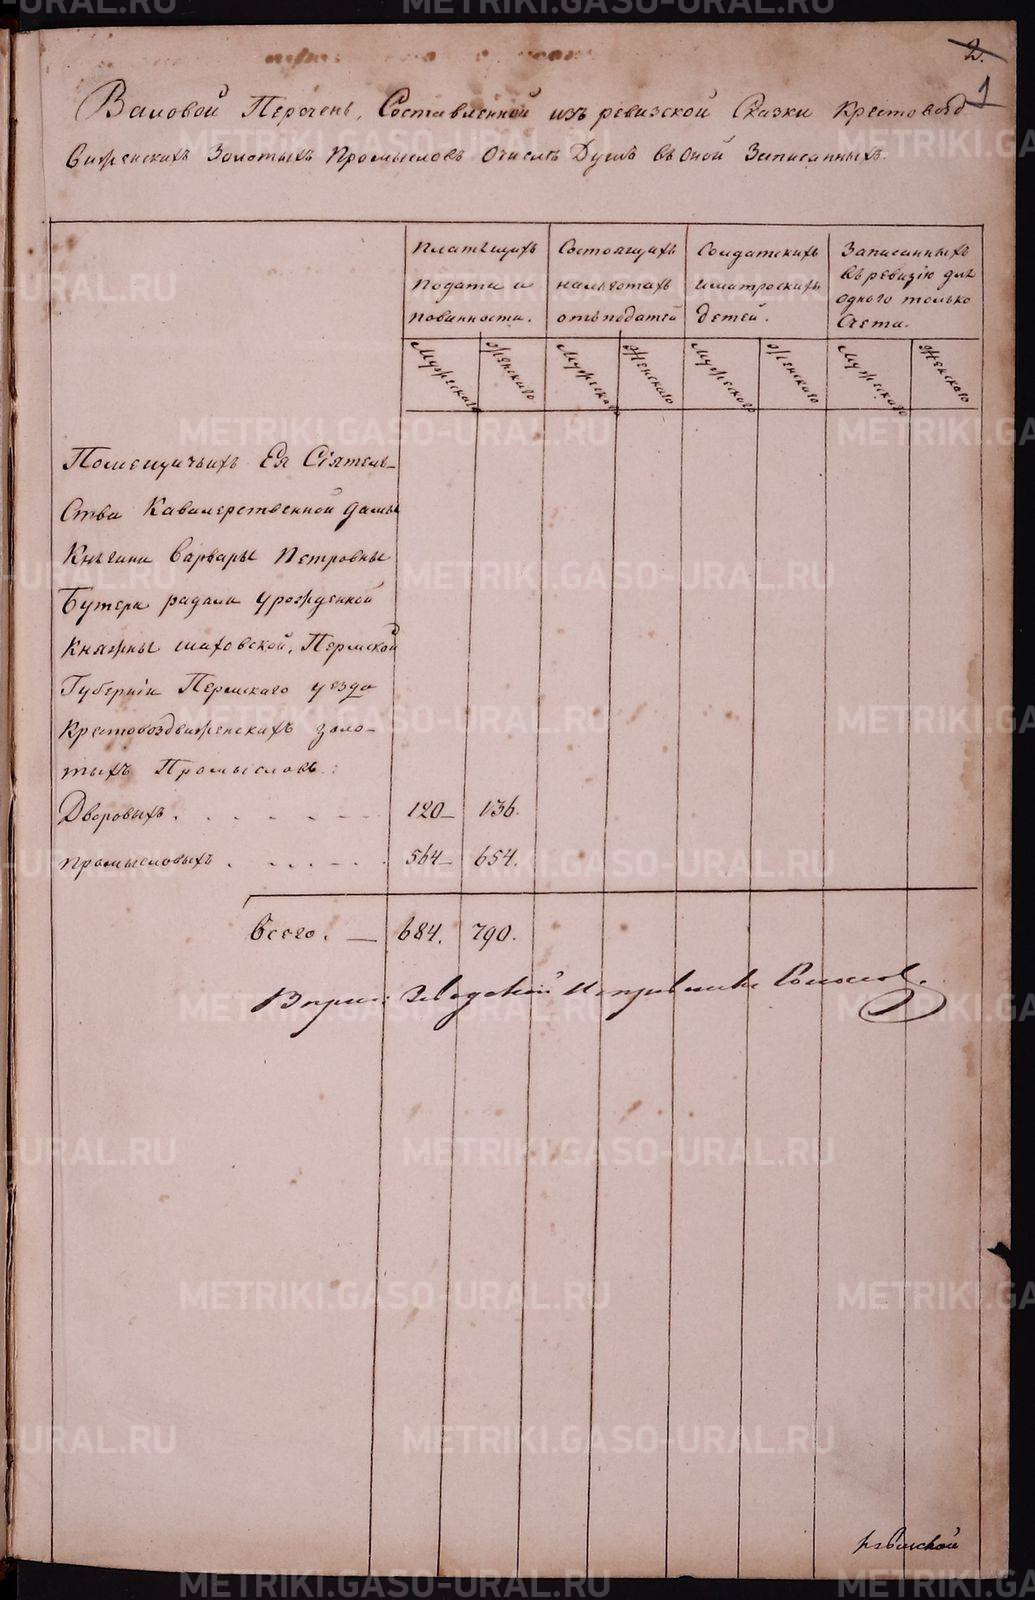 2.
1
Валовой Перечень, Составленной изъ ревизской Сказки Крестовозд
виженскихъ Золотыхъ Промысловъ Очисле Душъ въ Оной Записанныхъ.
Платящихъ подати и повинности.
Состоящихъ нальготахъ отъ податей
Солдатскихъ иматроскихъ детей.
Записанныхъ въ ревизію для одного только Счета.
Мужескаго Женскаго Мужескаго Женскаго Мужескаго Женскаго Мужескаго Женскаго
Помещичьихъ Ея Сіятель-
Ства Кавалерственной дамы
Княгини Варвары Петровны
Бутера радали Урожденной
Княжны шаховской, Пермской
Губерніи Пермскаго уезда
Крестовоздвиженскихъ золо-
тыхъ Промысловъ:
Дворовыхъ. 120 136.
промысловыхъ. 564 654.
Всего. 684. 790.
Заводской Исправникъ
METRIKI.GASO-URAL.RU